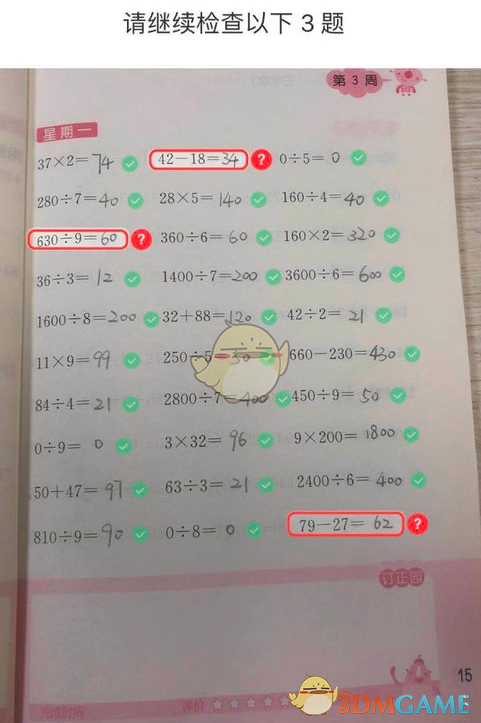 请继续检查以下 3 题
第 3 周
星期一
37×2=74 42-18=34 ? 0÷5=0
280÷7=40 28×5=140 160÷4=40
630÷9=60 ? 360÷6=60 160×2=320
36÷3=12 1400÷7=200 3600÷6=600
1600÷8=200 32+88=120 42÷2=21
11×9=99 250÷5=50 660-230=430
84÷4=21 2800÷7=400 450÷9=50
0÷9=0 3×32=96 9×200=1800
50+47=97 63÷3=21 2400÷6=400
810÷9=90 0÷8=0 79-27=62 ?
订正园
15
完成时间 评价
3DMGAME